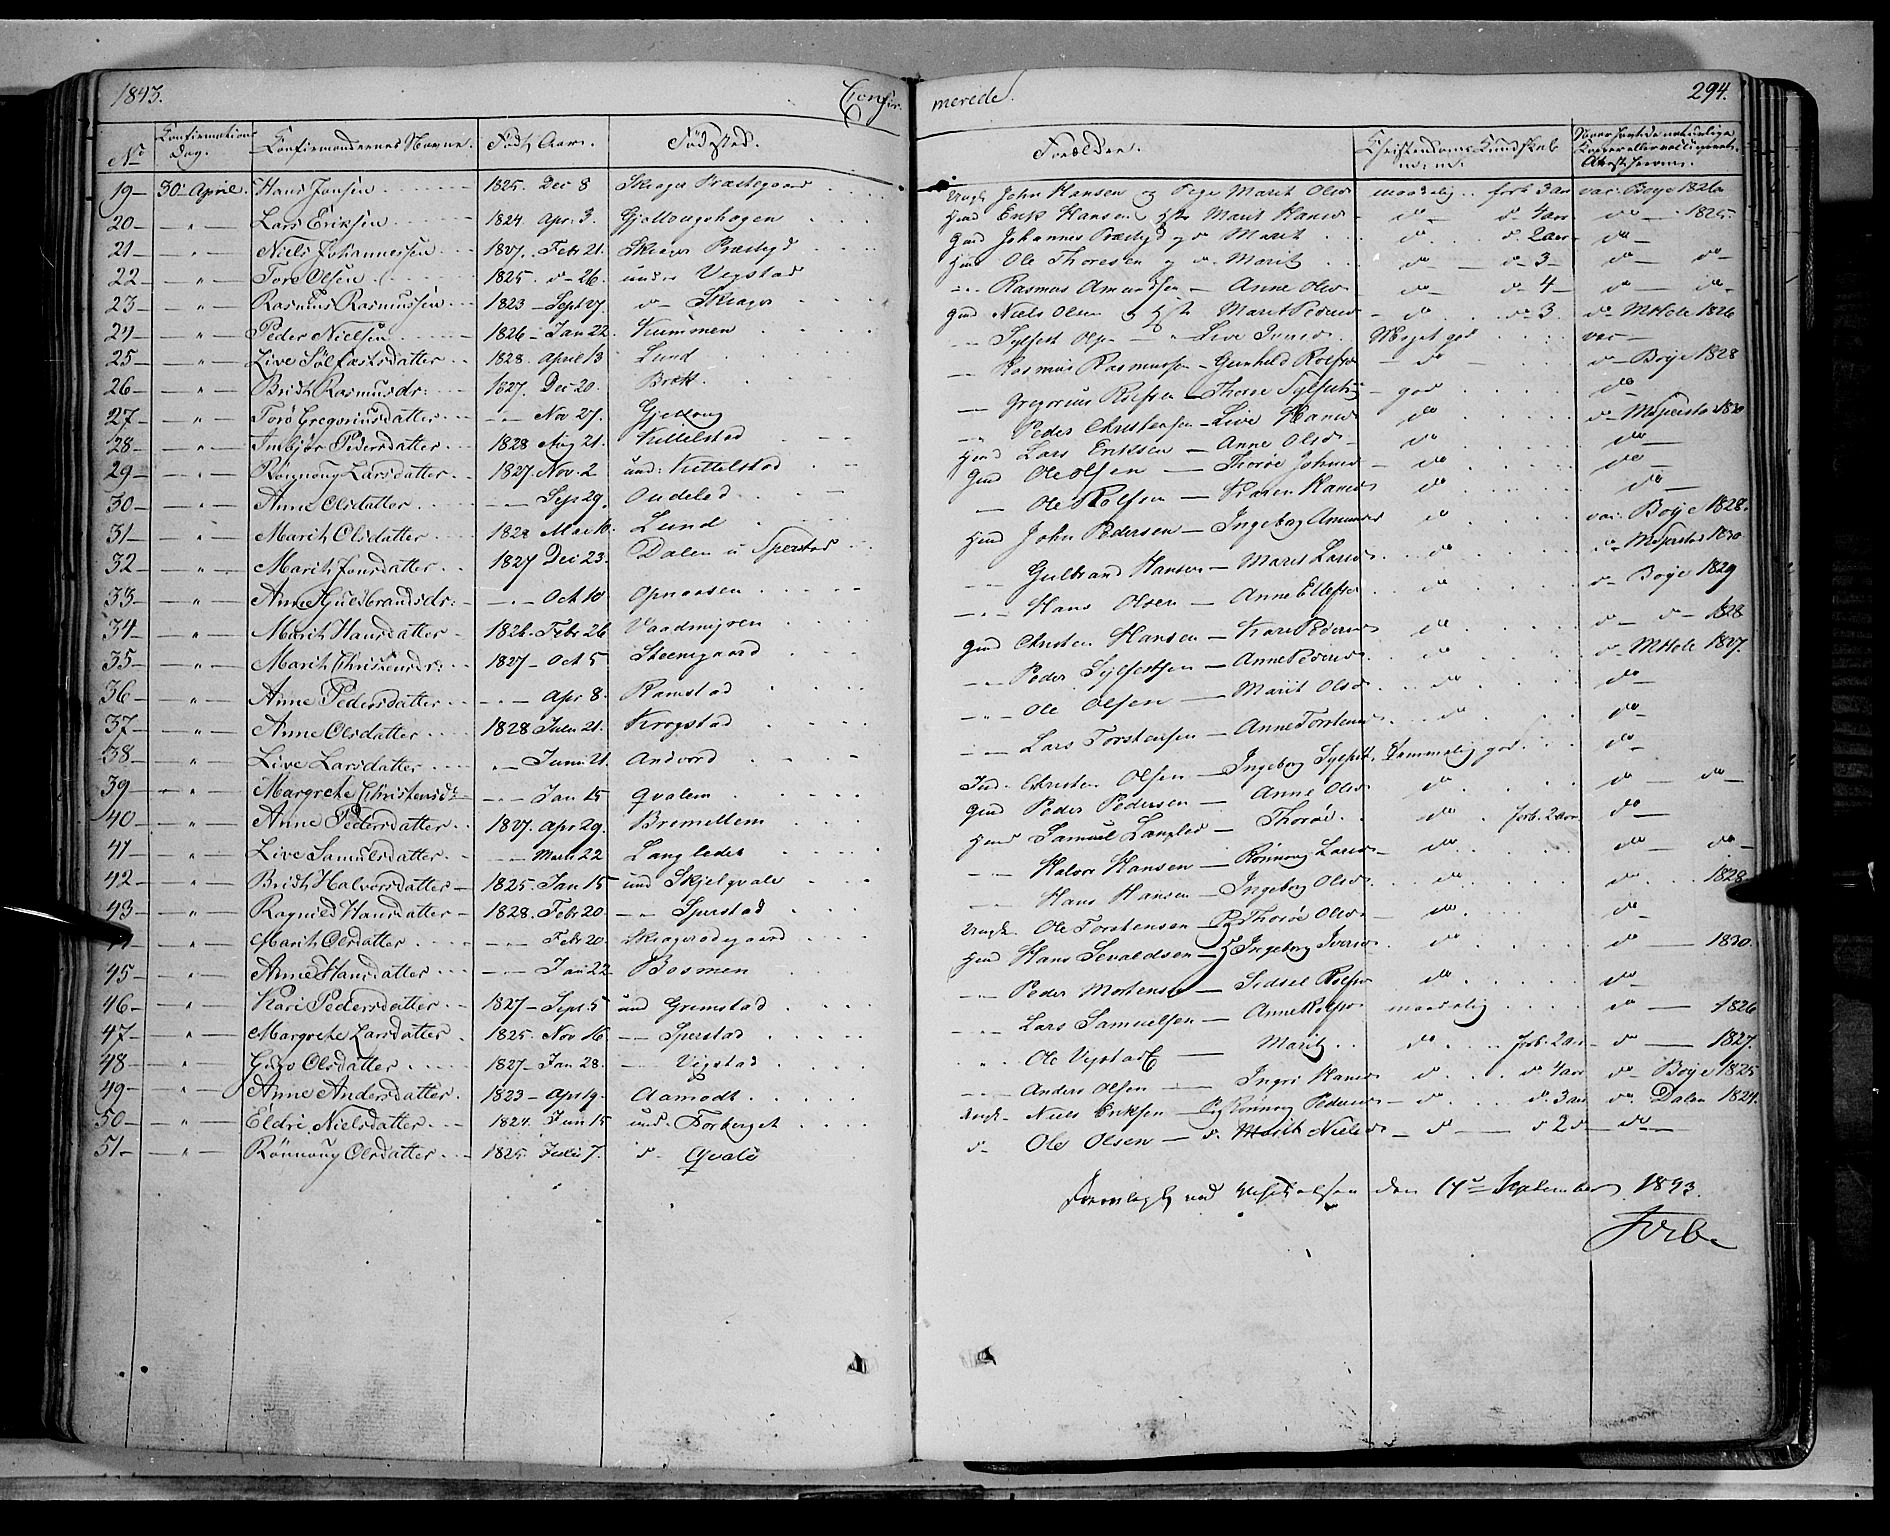 1843. Confir- merede. 294.
No Confirmations Dag. Confirmandernes Navne. Født Aar. Fødested. Forældre. Christendoms Kundskab m: m:
19 30 April Hans Jonsen 1825. Dec 8 Skiager Præstegaard Ungk John Hansen og Pige Marit Olsd maadelig forb. 3 aar vac: Boye 1826
20 " Lars Eriksen 1824 Apr. 3. Gjellougshagen Hmd Erik Hansen Hst Marit Hansd do do 4 aar do 1825
21 " Niels Johannessen 1827. Febr 21. Skiager Præstegd Gmd Johannes Præstgd og do Marit do do 2 aar do
22 " Tore Olsen 1825. do 26. under Vigstad Hmd Ole Thoresen og do Marit do do 3 do do
23 " Rasmus Rasmussen 1823 Sept 27. do Skiager Rasmus Amundsen Anne Olsd do do 4 do do
24 " Peder Nielsen 1826 Jan 22. Kummen Gmd Niels Olsen og Hst Marit Pedersd do do 3 do M Hole 1826
25 " Live Sølfæstsdatter 1828. April 13 Lund Sylfest Ols Live Iversd Meget god vac
26 " Brith Rasmusdr: 1827. Dec 20. Brækk Rasmus Rasmussen Gunhild Rolfsd do do Boye 1828
27 " Torø Gregoriusdatter Nov 27. Gjelloug Gregorius Rolfsen Thorøe Sylfestd god do
28 " Imbjør Pedersdatter 1828 Aug 21. Kittelstad Peder Christensen Live Hansd do do M Sperstad 1830
29 " Rønnoug Larsdatter 1827. Nov. 2 und: Kittelstad Hmd Lars Eriksen Anne Olsd do do
30 " Anne Olsdatter Sept 29. Ondelad Gmd Ole Olsen Thorøe Johnsd do do
31 " Marith Olsdatter 1828 Mai 10. Lund Ole Rolfsen Karen Hansd do do
32 " Marith Jonsdatter 1827 Dec 23. Dalen u Sperstad Hmd John Pedersen Ingeborg Amundsd do vac: Boye 1828.
33 " Anne Gulbrandsdr: Oct 10 Opnaasen Gulbrand Hansen Marit Larsd do do M Sperstad 1830
34 " Marith Hansdatter 1826. Febr 26 Vaadmyren Hans Olsen Anne Ellefsd do do Boye 1829
35 " Marith Christensdr: 1827 Oct 5 Steensgaard Gmd Christen Hansen Kari Pedersd do do do 1828
36 " Anne Pedersdatter Apr 8. Ramstad Peder Sylfestsen Anne Pedersd do do M Hole 1827.
37 " Anne Olsdatter 1828 Julu 21. Krogstad Ole Olsen Marit Olsd do do
38 " Live Larsdatter Juni 21. Andvord Lars Torstensen Anne Torstensd do do
39 " Margrete Christensdr Jan 15 Qvalem Christen Olsen Ingeborg Sylfestd temmelig god do
40 " Anne Pedersdatter 1827. Apr 29. Bremellem Gmd Peder Pedersen Anne Olsd do do do
41 " Live Samulsdatter Marts 22 Langledet Hmd Samuel Langled Thorøe do forb. 2 aar do
42 " Brith Halvorsdatter 1825 Jan 15 und Skjelqvale Halvor Hansen Rønnoug Larsd do do do
43 " Ragnild Hansdatter 1828. Febr 20. Sperstad Hans Hansen Ingeborg Olsd do do 1828
44 Marith Olsdatter Febr 20. Skiagerødegaard Ungk Ole Torstensen Pg Thorøe Olsd do do
45 " Anne Hansdatter Jan 22. Bosmen Hmd Hans Sevaldsen H Ingeborg Iversd do do 1830.
46 " Kari Pedersdatter 1827 Sept. 5 und Grimstad Peder Mortensen Sidsel Rolfsd do do
47 " Margrete Larsdatter 1825. Nov 16 Sperstad Lars Samuelsen Anne Rolfsd maadelig do 1826
48 " Guro Olsdatter 1827 Jan 28. Vigstad Ole Vigstad Marit do forb. 2 aar do 1827.
49 " Anne Andersdatter 1823 Apr 9. Aamodt Anders Olsen Ingri Hansd do do 4 aar do Boye 1825
50 " Eldri Nielsdatter 1824. Juni 15 und. Forberget Ungk Niels Eriksen Pg Rønnoug Pedersd do do 3 aar do Dalen 1824.
51 " Rønnoug Olsdatter 1825. Julu 7. do Qvale do Ole Olsen do Marit Nielsd do do 2 do do
Fremlagt ved Visitatsen den 14de September 1843.